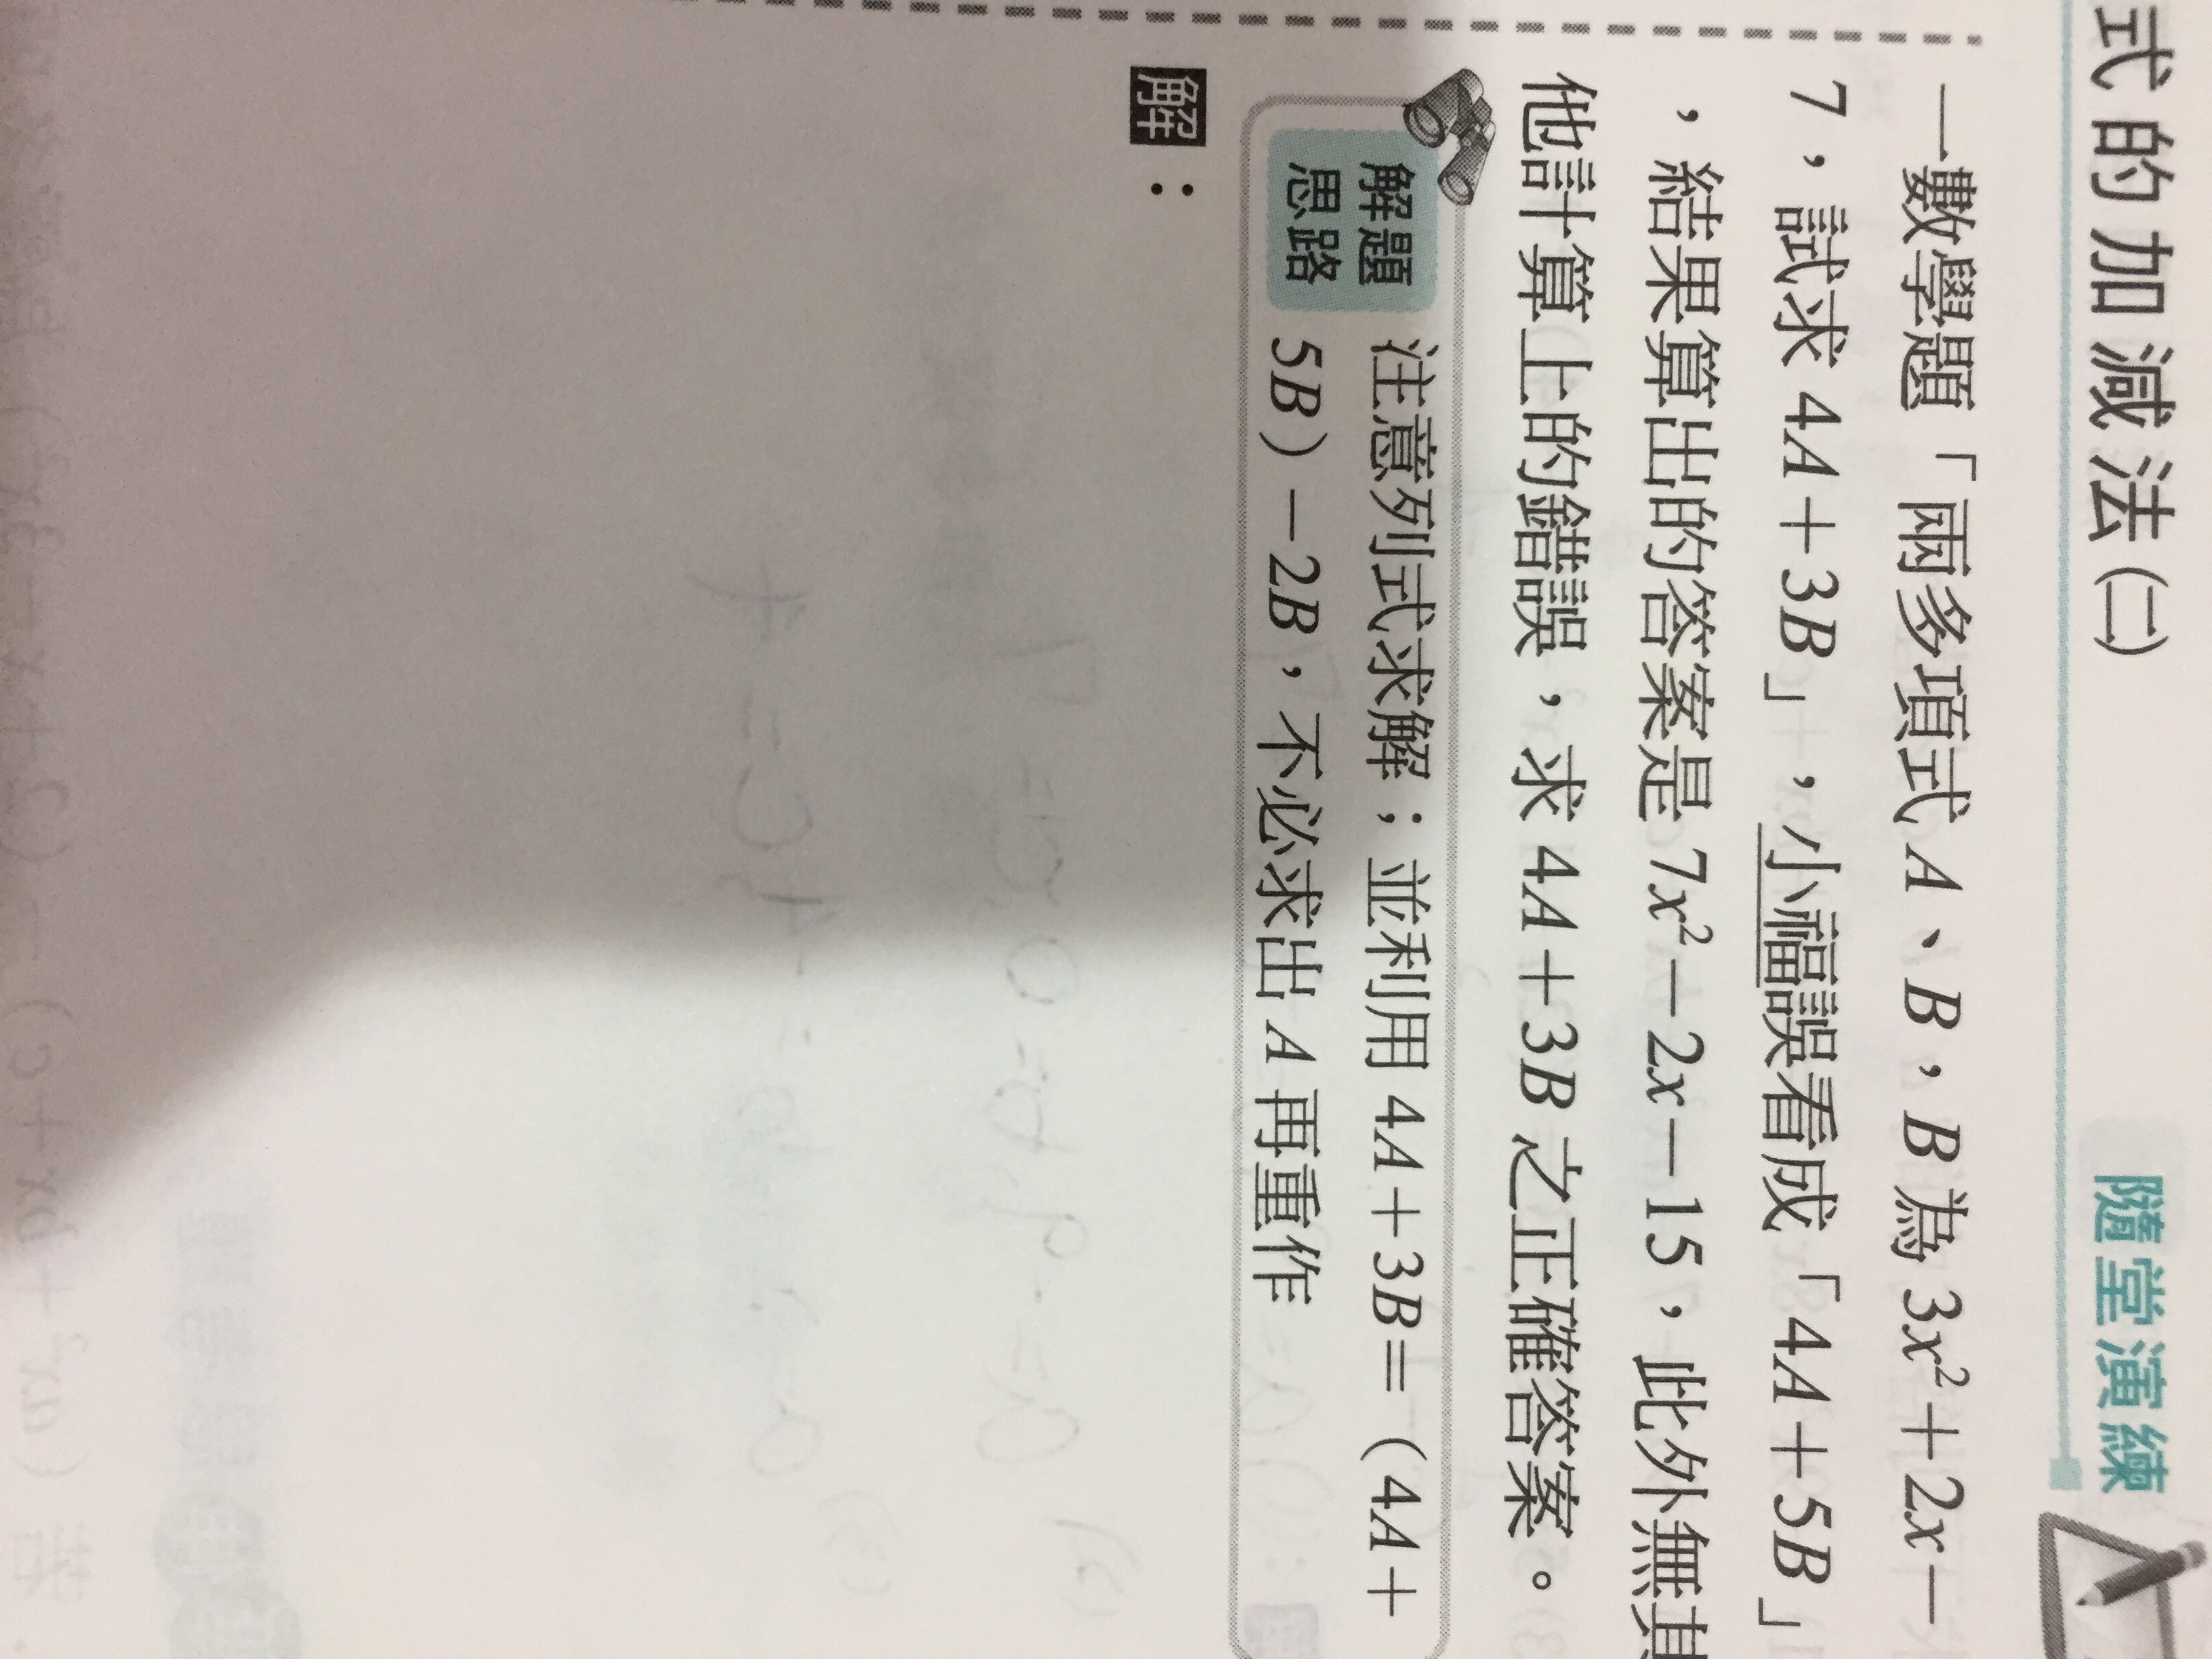 式的加減法(二)
隨堂演練
一數學題「兩多項式A、B，B為3x²+2x-
7，試求4A+3B」，小福誤看成「4A+5B」
，結果算出的答案是7x²-2x-15，此外無其
他計算上的錯誤，求4A+3B之正確答案。
解題
思路
注意列式求解；並利用4A+3B=(4A+
5B)-2B，不必求出A再重作
解：